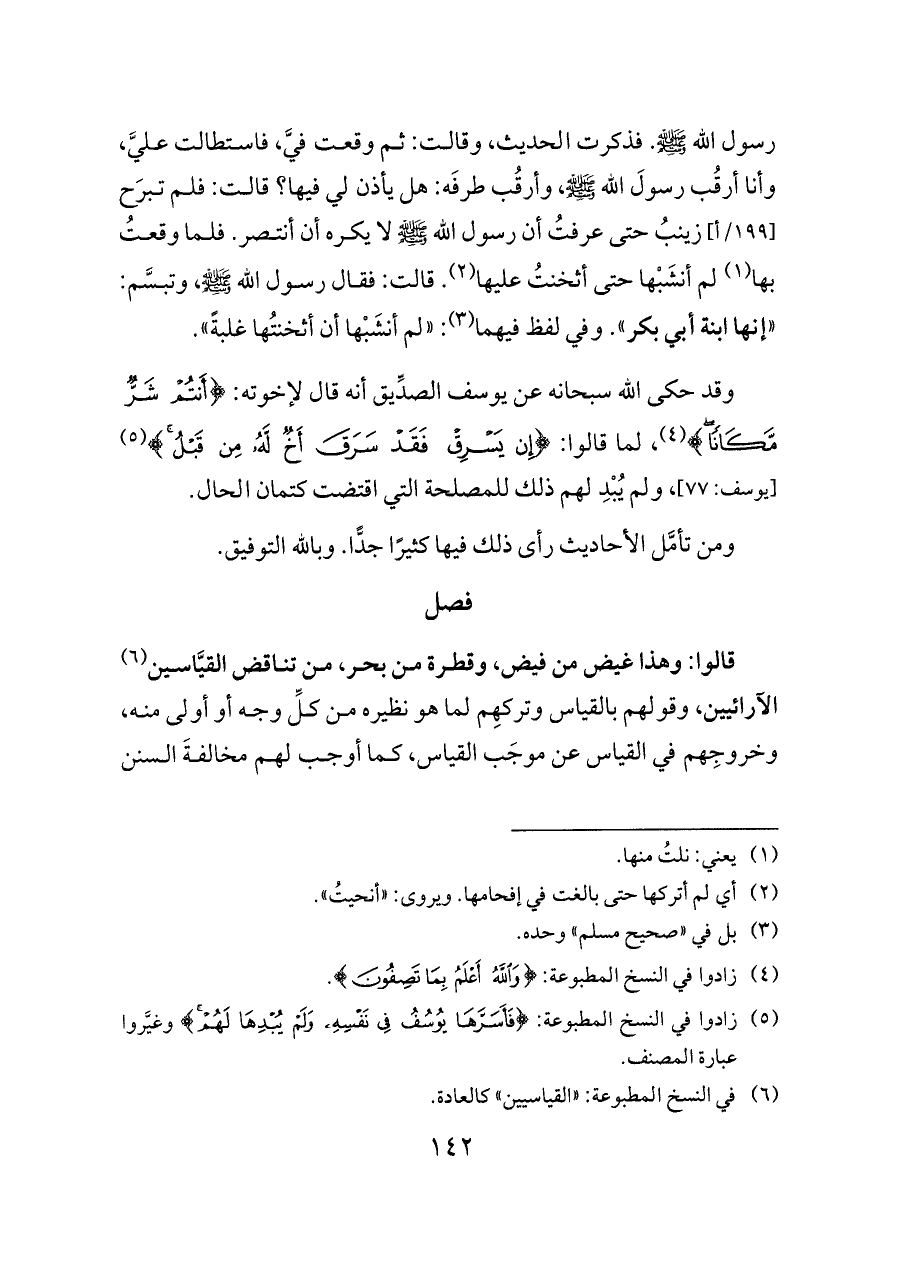 رسول الله ﷺ. فذكرت الحديث، وقالت: ثم وقعت فيَّ، فاستطالت عليَّ،
وأنا أرقُب رسولَ الله ﷺ، وأرقُب طرفَه: هل يأذن لي فيها؟ قالت: فلم تبرَح
[١٩٩/أ] زينبُ حتى عرفتُ أن رسول الله ﷺ لا يكره أن أنتصر. فلما وقعتُ
بها(١) لم أنشَبْها حتى أثخنتُ عليها(٢). قالت: فقال رسول الله ﷺ، وتبسَّم:
«إنها ابنة أبي بكر». وفي لفظ فيهما(٣): «لم أنشَبْها أن أثخنتُها غلبةً».
وقد حكى الله سبحانه عن يوسف الصدِّيق أنه قال لإخوته: ﴿أَنتُمْ شَرٌّ
مَّكَانًاۖ﴾(٤)، لما قالوا: ﴿إِن يَسْرِقْ فَقَدْ سَرَقَ أَخٌ لَّهُۥ مِن قَبْلُۚ﴾(٥)
[يوسف: ٧٧]، ولم يُبْدِ لهم ذلك للمصلحة التي اقتضت كتمان الحال.
ومن تأمَّل الأحاديث رأى ذلك فيها كثيرًا جدًّا. وبالله التوفيق.
فصل
قالوا: وهذا غيض من فيض، وقطرة من بحر، من تناقض القيَّاسين(٦)
الآرائيين، وقولهم بالقياس وتركهِم لما هو نظيره من كلِّ وجه أو أولى منه،
وخروجِهم في القياس عن موجَب القياس، كما أوجب لهم مخالفةَ السنن
(١) يعني: نلتُ منها.
(٢) أي لم أتركها حتى بالغت في إفحامها. ويروى: «أنحيتُ».
(٣) بل في «صحيح مسلم» وحده.
(٤) زادوا في النسخ المطبوعة: ﴿وَٱللَّهُ أَعْلَمُ بِمَا تَصِفُونَ﴾.
(٥) زادوا في النسخ المطبوعة: ﴿فَأَسَرَّهَا يُوسُفُ فِى نَفْسِهِۦ وَلَمْ يُبْدِهَا لَهُمْۚ﴾ وغيَّروا
عبارة المصنف.
(٦) في النسخ المطبوعة: «القياسيين» كالعادة.
١٤٢